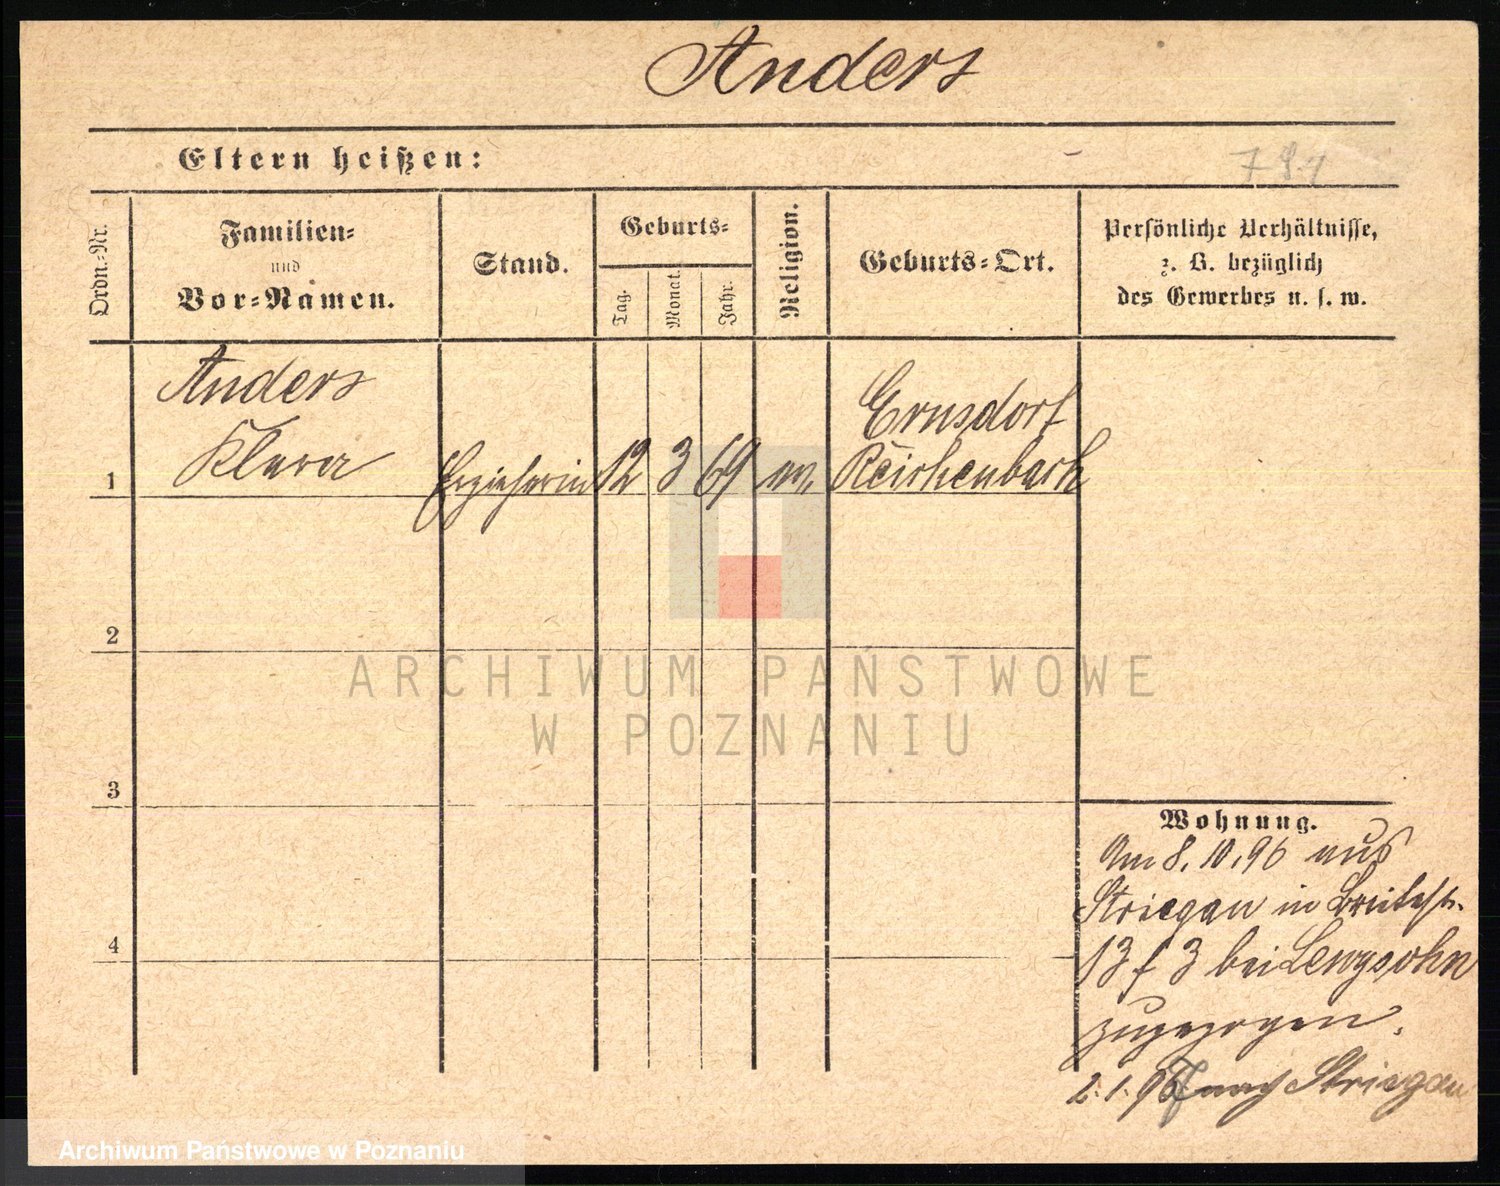 Anders
Eltern heißen:
781
Ordn.-Nr.
Familien-
und
Vor-Namen.
Stand.
Geburts-
Tag.
Monat.
Jahr.
Religion.
Geburts-Ort.
Persönliche Verhältnisse,
z. B. bezüglich
des Gewerbes u. s. w.
1
Anders
Klara
Erzieherin
12
3
69
ev.
Ernsdorf
Reichenbach
2
3
4
Wohnung.
Am 8.10.96 aus
Striegau in Breitestr.
13 f 3 bei Lewysohn
zugezogen.
2.1.97 nach Striegau
ARCHIWUM PAŃSTWOWE
W POZNANIU
Archiwum Państwowe w Poznaniu